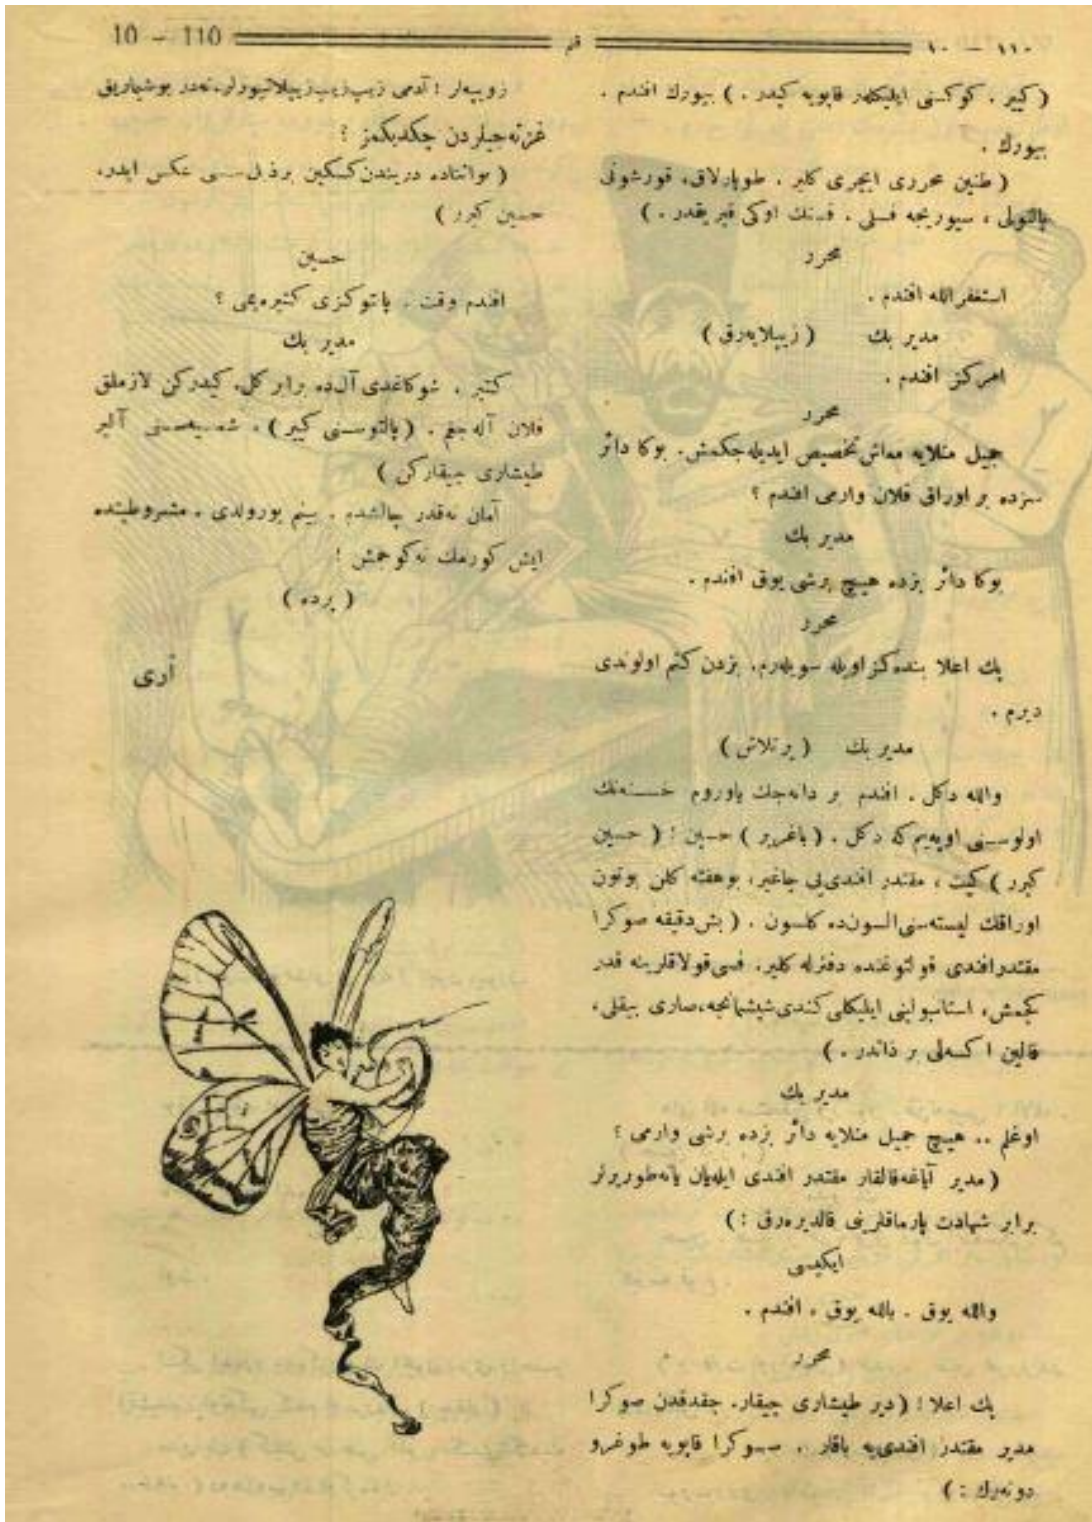 10 — 110
قلم
١١٠ — ١٠
(كيير . كوكسنى ايليكلهر قاپويه كيدر . ) بيورك افندم .
بيورك .
( طنين محررى ايچرى كلير . طوپارلاق، قورشونى
پالتولى ، سيوريجه فسلى . فسنك اوكى قيريقدر . )
محرر
استغفرالله افندم .
مدير بك ( زيپلايه‌رق )
امركز افندم .
محرر
جميل منلايه معاش تخصيص ايديله‌جكمش. بوكا دائر
سزده بر اوراق فلان وارمى افندم ؟
مدير بك
بوكا دائر بزده هيچ برشى يوق افندم .
محرر
پك اعلا بنده‌كز اويله سويلرم. بزدن كتم اولوندى
ديرم .
مدير بك ( بر تلاش )
والله دكل . افندم بر دانه‌جك ياوروم خسنه‌نك
اولوسنى اوپه‌يم كه دكل . ( باغرير ) حسين ! ( حسين
كيرر ) كيت ، مقتدر افندى‌يى چاغير، بوهفته كلن بوتون
اوراقك ليسته‌سنى السون‌ده كلسون . ( بش دقيقه صوكرا
مقتدر افندى قولتوغنده دفترله كلير. فسى قولاقلرينه قدر
كچمش، استانبولينى ايليكلى كندى شيشمانجه، صارى بيقلى،
قالين اكسه‌لى بر ذاتدر . )
مدير بك
اوغلم .. هيچ جميل منلايه دائر بزده برشى وارمى ؟
( مدير آياغه قالقار مقتدر افندى ايله‌يان يانه طوريرلر
برابر شهادت پارماقلرينى قالديره‌رق : )
ايكيسى
والله يوق . بالله يوق ، افندم .
محرر
پك اعلا ! ( دير طيشارى چيقار. چقدقدن صوكرا
مدير مقتدر افندى‌يه باقار . صوكرا قاپويه طوغرو
دونه‌رك : )
زوپپه‌لر ! آدمى زيپ زيپ زيپلاتيورلر، نه‌در بوشيماريق
غزته‌جيلردن چكديكمز ؟
( موانتاده دريندن كسكين بر ذل سسى عكس ايدر،
حسين كيرر )
حسين
افندم وقت . پالتوكزى كتيره‌يمى ؟
مدير بك
كتير . شو كاغدى آل‌ده برابر كل. كيدركن لازملق
فلان آله‌جغم . ( پالتوسنى كيير ) ، شمسيه‌سنى آلير
طيشارى چيقاركن )
آمان نه‌قدر چالشدم . بينم يورولدى . مشروطيتده
ايش كورمك نه‌كوجمش !
( پرده )
آرى